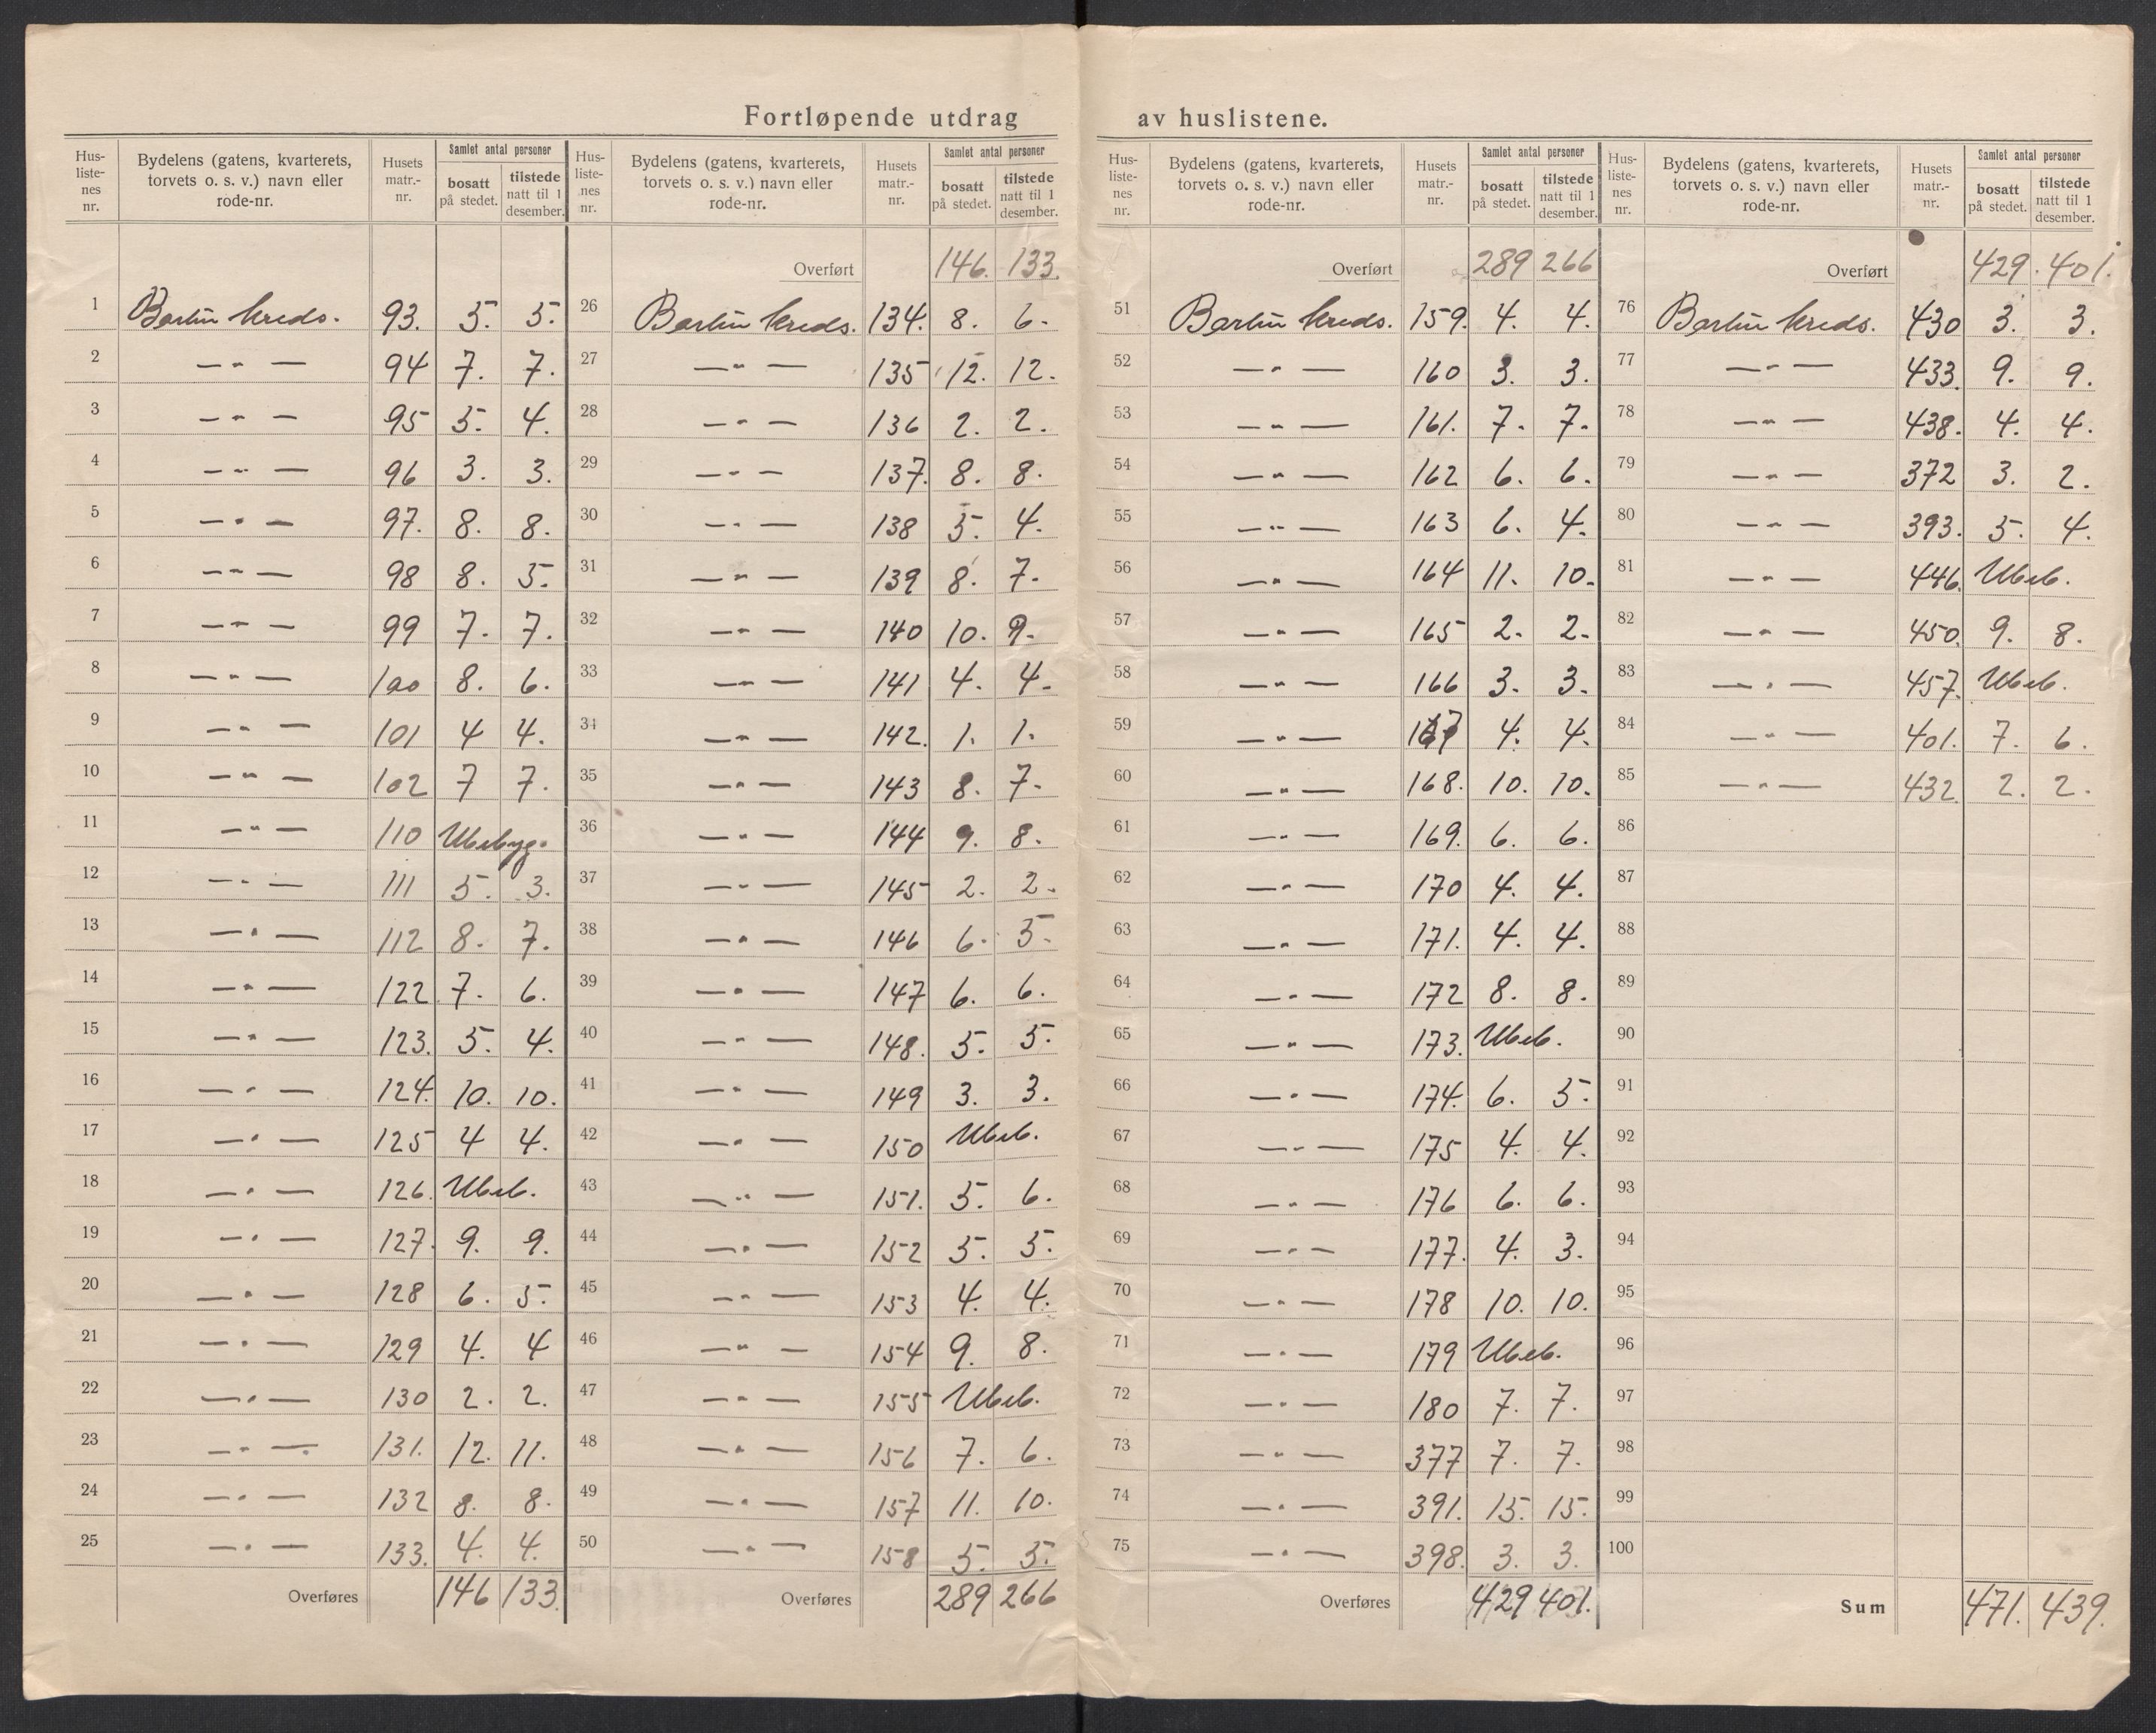 Fortløpende utdrag av huslistene.
Hus-liste-nes nr. | Bydelens (gatens, kvarterets, torvets o. s. v.) navn eller rode-nr. | Husets matr.-nr. | Samlet antal personer | bosatt på stedet. | tilstede natt til 1 desember.
1 Berlin kreds. 93. 5. 5.
2 — „ — 94 7. 7.
3 — „ — 95 5. 4.
4 — „ — 96 3. 3.
5 — „ — 97. 8. 8.
6 — „ — 98 8. 5.
7 — „ — 99 7. 7.
8 — „ — 100 8. 6.
9 — „ — 101 4 4.
10 — „ — 102 7 7.
11 — „ — 110 Ubebyg.
12 — „ — 111 5. 3.
13 — „ — 112 8. 7.
14 — „ — 122 7. 6.
15 — „ — 123. 5. 4.
16 — „ — 124. 10. 10.
17 — „ — 125 4 4.
18 — „ — 126. Ubeb.
19 — „ — 127. 9. 9.
20 — „ — 128 6. 5.
21 — „ — 129 4. 4
22 — „ — 130 2. 2.
23 — „ — 131. 12. 11.
24 — „ — 132 8. 8.
25 — „ — 133. 4. 4.
Overføres 146 133.
Hus-liste-nes nr. | Bydelens (gatens, kvarterets, torvets o. s. v.) navn eller rode-nr. | Husets matr.-nr. | Samlet antal personer | bosatt på stedet. | tilstede natt til 1 desember.
Overført 146. 133.
26 Berlin kreds. 134. 8. 6.
27 — „ — 135 12. 12.
28 — „ — 136 2. 2.
29 — „ — 137. 8. 8.
30 — „ — 138 5. 4.
31 — „ — 139 8. 7.
32 — „ — 140 10. 9.
33 — „ — 141 4. 4.
34 — „ — 142. 1. 1.
35 — „ — 143 8. 7.
36 — „ — 144 9. 8.
37 — „ — 145 2. 2.
38 — „ — 146 6. 5.
39 — „ — 147 6. 6.
40 — „ — 148. 5. 5.
41 — „ — 149 3. 3.
42 — „ — 150 Ubeb.
43 — „ — 151. 5. 6.
44 — „ — 152 5. 5.
45 — „ — 153 4. 4.
46 — „ — 154 9. 8.
47 — „ — 155 Ubeb.
48 — „ — 156 7. 6.
49 — „ — 157 11. 10.
50 — „ — 158 5. 5.
Overføres 289 266
Hus-liste-nes nr. | Bydelens (gatens, kvarterets, torvets o. s. v.) navn eller rode-nr. | Husets matr.-nr. | Samlet antal personer | bosatt på stedet. | tilstede natt til 1 desember.
Overført 289 266
51 Berlin kreds. 159. 4. 4.
52 — „ — 160 3. 3.
53 — „ — 161. 7. 7.
54 — „ — 162 6. 6.
55 — „ — 163 6. 4.
56 — „ — 164 11. 10.
57 — „ — 165 2. 2.
58 — „ — 166 3. 3.
59 — „ — 167 4. 4.
60 — „ — 168. 10. 10.
61 — „ — 169. 6. 6.
62 — „ — 170 4. 4.
63 — „ — 171. 4. 4.
64 — „ — 172 8. 8.
65 — „ — 173. Ubeb.
66 — „ — 174. 6. 5.
67 — „ — 175 4. 4.
68 — „ — 176 6. 6.
69 — „ — 177. 4. 3.
70 — „ — 178 10. 10.
71 — „ — 179 Ubeb.
72 — „ — 180 7. 7.
73 — „ — 377 7. 7.
74 — „ — 391. 15. 15.
75 — „ — 398. 3. 3.
Overføres 429 401.
Hus-liste-nes nr. | Bydelens (gatens, kvarterets, torvets o. s. v.) navn eller rode-nr. | Husets matr.-nr. | Samlet antal personer | bosatt på stedet. | tilstede natt til 1 desember.
Overført 429. 401.
76 Berlin kreds. 430 3. 3.
77 — „ — 433. 9. 9.
78 — „ — 438. 4. 4.
79 — „ — 372 3. 2.
80 — „ — 393. 5. 4.
81 — „ — 446. Ubeb.
82 — „ — 450. 9. 8.
83 — „ — 457. Ubeb.
84 — „ — 401. 7. 6.
85 — „ — 432. 2. 2.
86
87
88
89
90
91
92
93
94
95
96
97
98
99
100
Sum 471. 439.